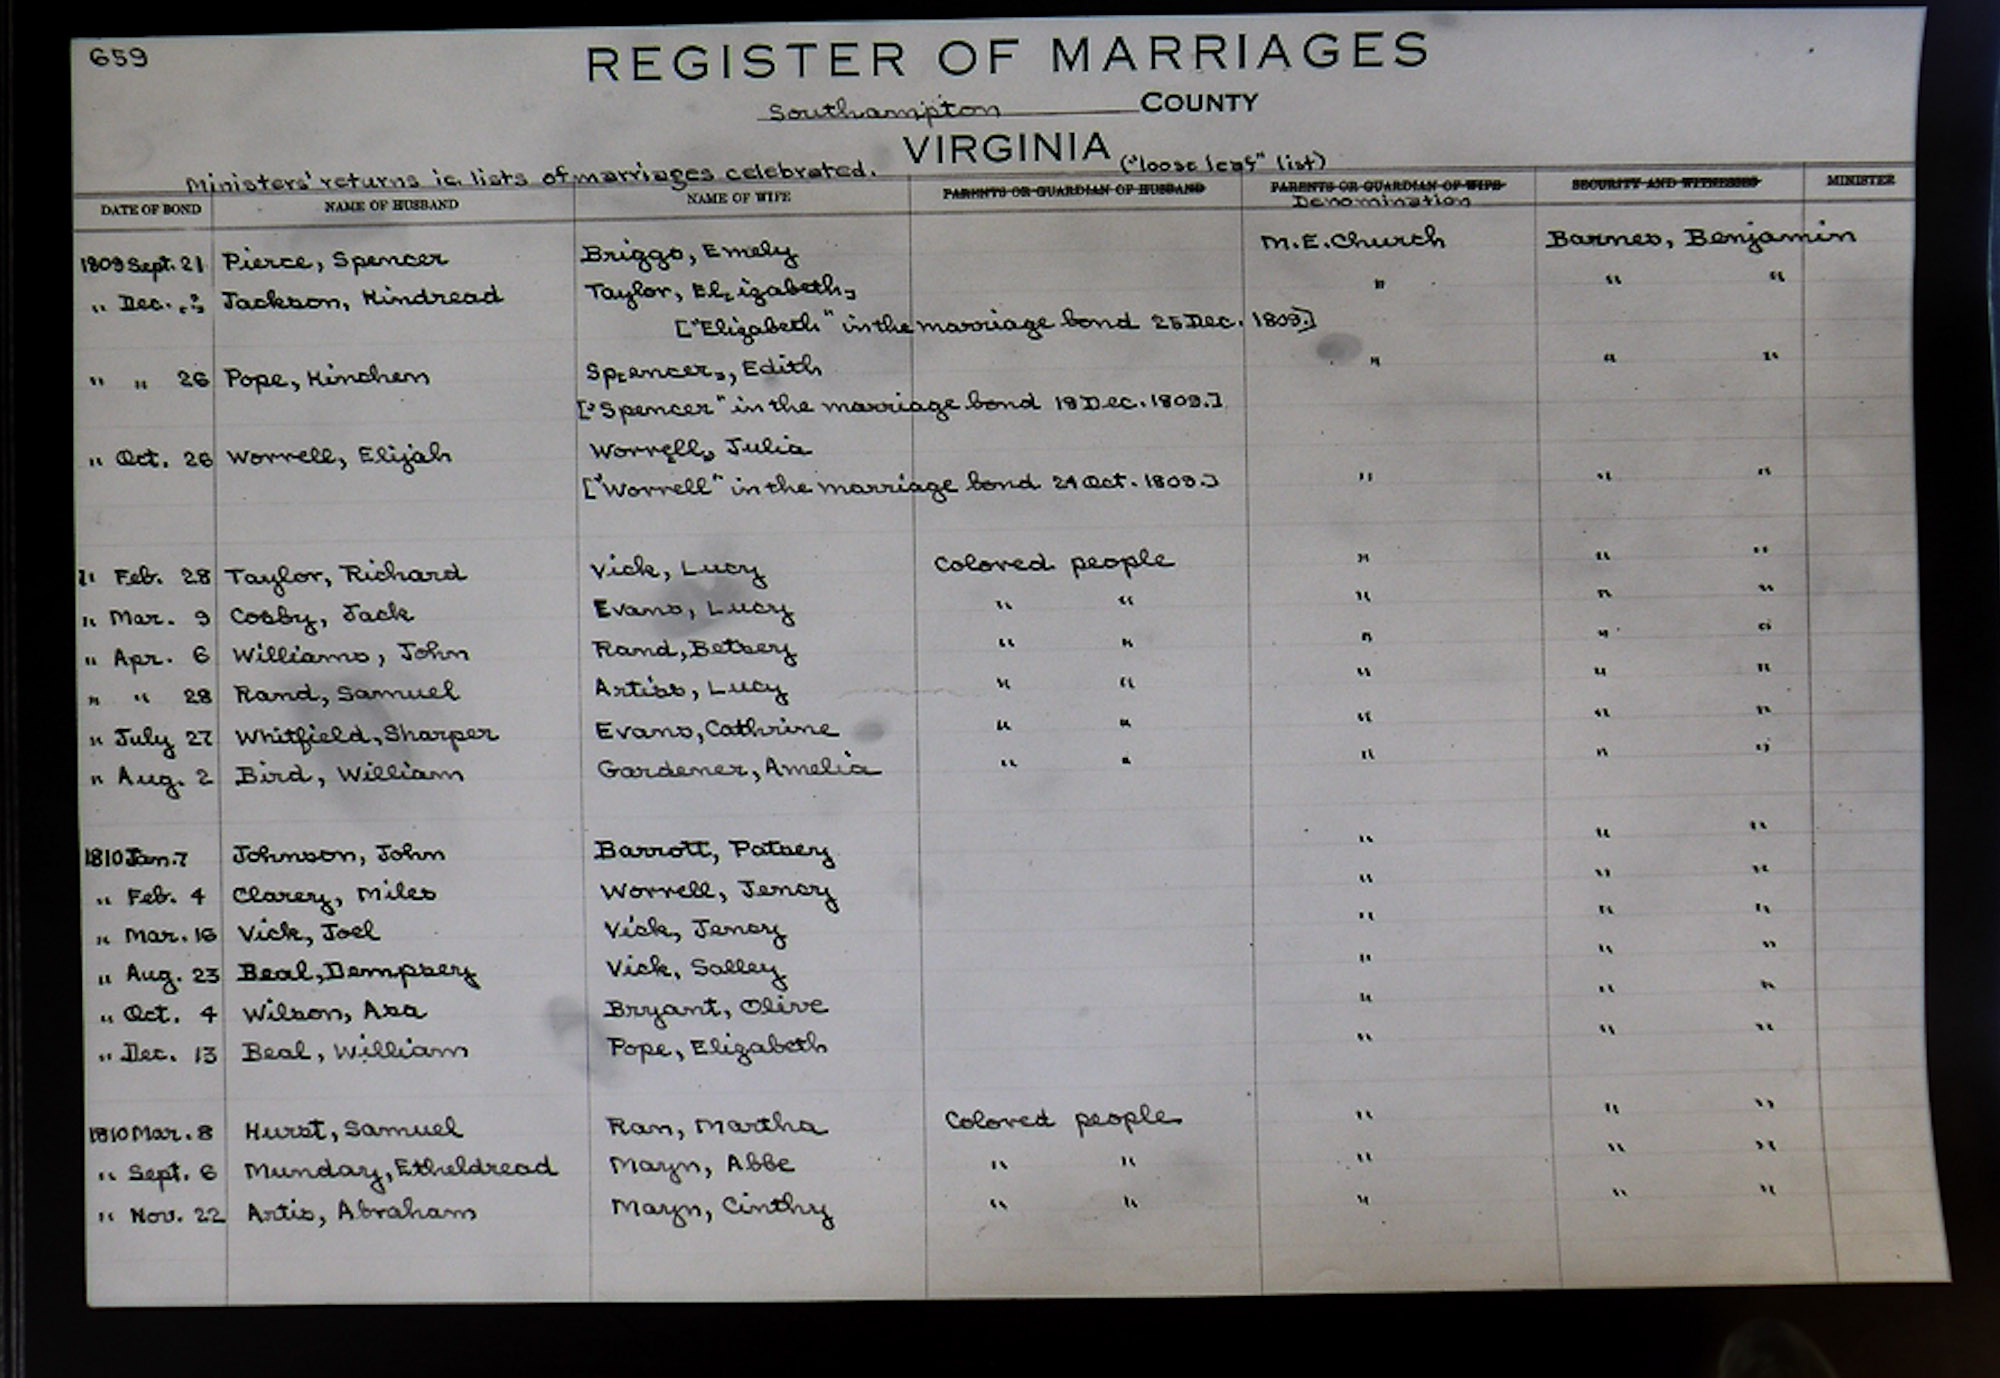 659
REGISTER OF MARRIAGES
Southampton COUNTY
VIRGINIA ("loose leaf" list)
Ministers' returns ie. lists of marriages celebrated.
DATE OF BOND NAME OF HUSBAND NAME OF WIFE PARENTS OR GUARDIAN OF HUSBAND PARENTS OR GUARDIAN OF WIFE SECURITY AND WITNESSES MINISTER
Denomination
1809 Sept. 21 Pierce, Spencer Briggs, Emely M.E. Church Barnes, Benjamin
" Dec. [?] Jackson, Kindread Taylor, El[izabeth] " " "
["Elizabeth" in the marriage bond 25 Dec. 1809.]
" " 26 Pope, Kinchen Sp[encer], Edith " " "
["Spencer" in the marriage bond 18 Dec. 1809.]
" Oct. 26 Worrell, Elijah Worr[ell], Julia
["Worrell" in the marriage bond 24 Oct. 1809.] " " "
" Feb. 28 Taylor, Richard Vick, Lucy Colored people " " "
" Mar. 9 Cosby, Jack Evans, Lucy " " " " "
" Apr. 6 Williams, John Rand, Betsey " " " " "
" " 28 Rand, Samuel Artiss, Lucy " " " " "
" July 27 Whitfield, Sharper Evans, Cathrine " " " " "
" Aug. 2 Bird, William Gardener, Amelia " " " " "
1810 Jan. 7 Johnson, John Barrott, Patsey " " "
" Feb. 4 Clarey, Miles Worrell, Jency " " "
" Mar. 16 Vick, Joel Vick, Jency " " "
" Aug. 23 Beal, Dempsey Vick, Salley " " "
" Oct. 4 Wilson, Asa Bryant, Olive " " "
" Dec. 13 Beal, William Pope, Elizabeth " " "
1810 Mar. 8 Hurst, Samuel Ran, Martha Colored people " " "
" Sept. 6 Munday, Etheldread Mayn, Abbe " " " " "
" Nov. 22 Artis, Abraham Mayn, Cinthy " " " " "